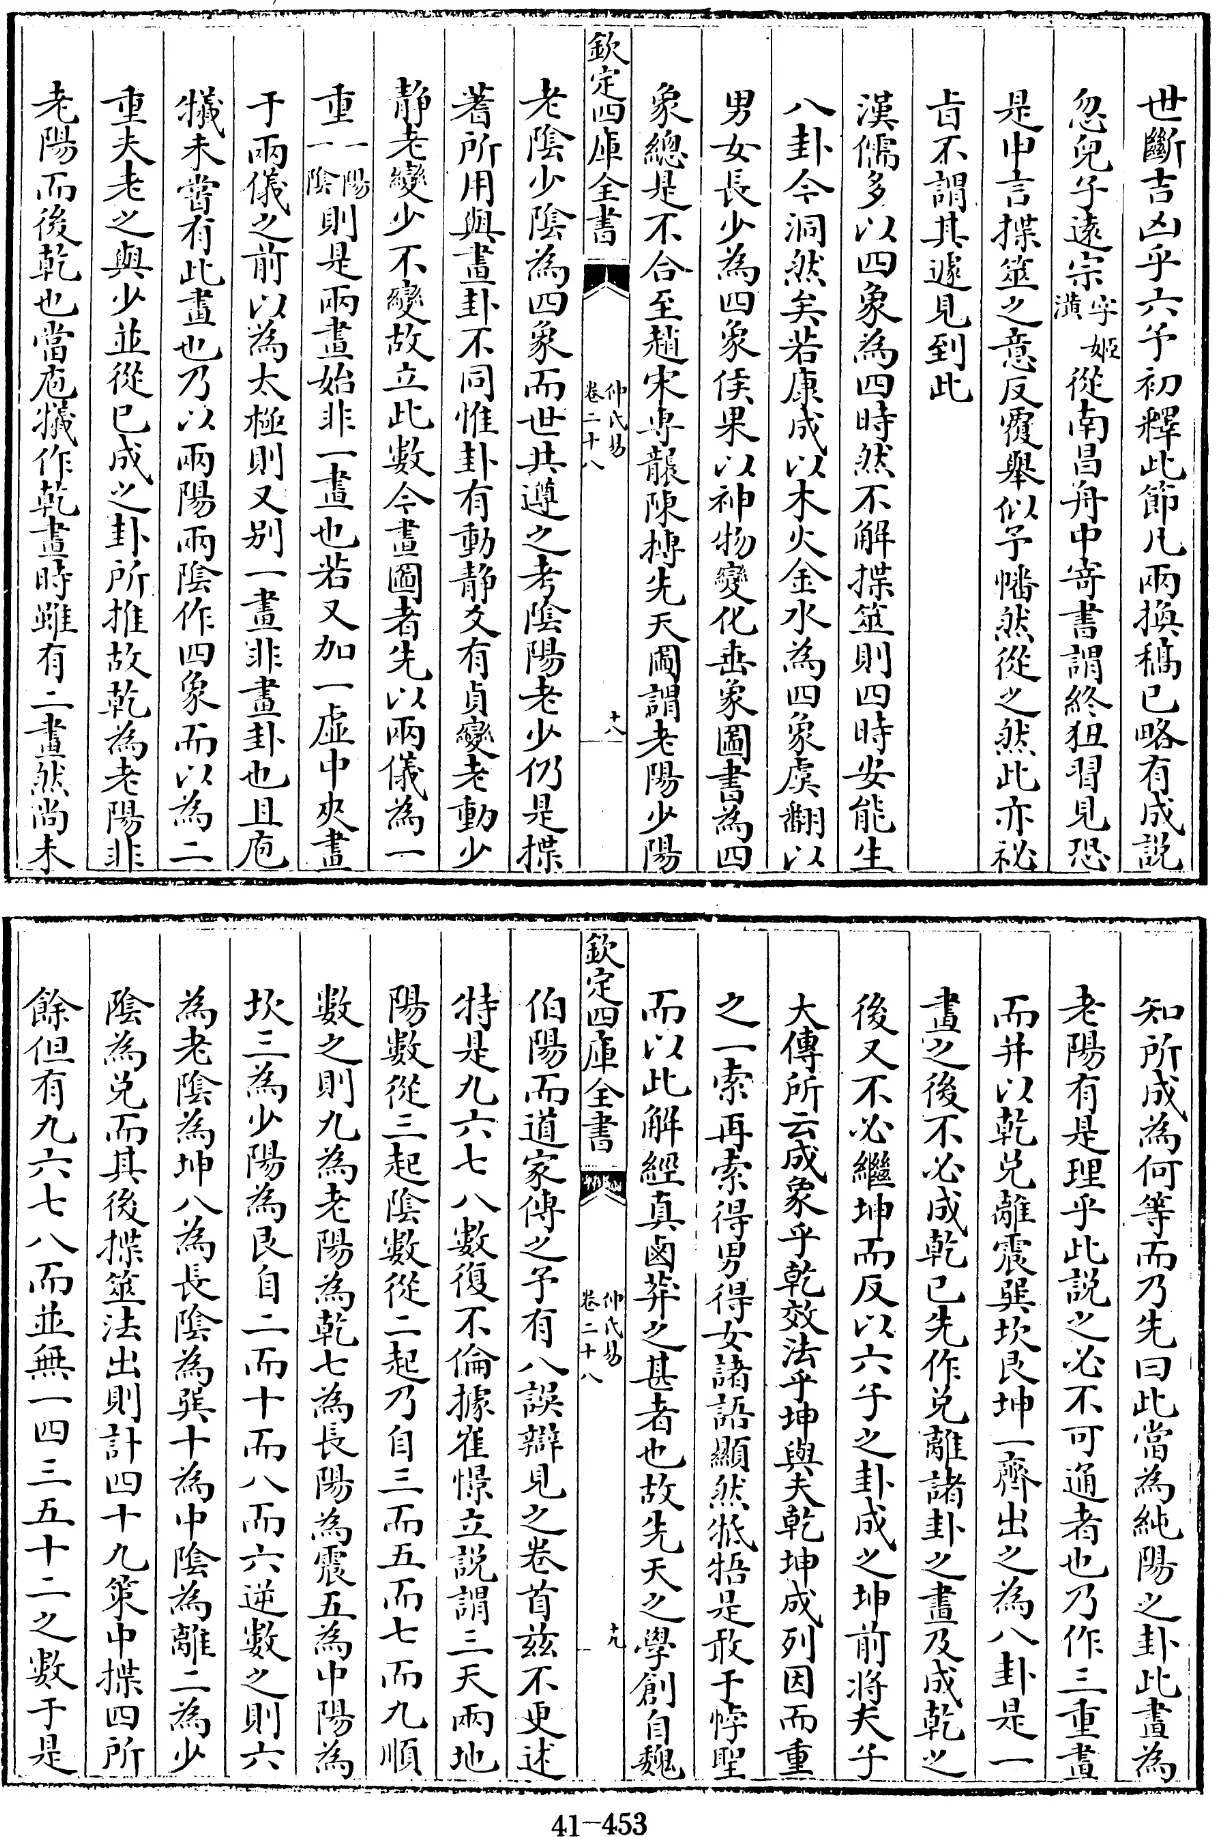 世斷吉凶乎六予初釋此節凡兩換稿已略有成説
忽兒子遠宗字姬潢從南昌舟中寄書謂終狃習見恐
是申言揲筮之意反覆舉似予幡然從之然此亦祕
旨不謂其遽見到此
漢儒多以四象為四時然不解揲筮則四時安能生
八卦今洞然矣若康成以木火金水為四象虞翻以
男女長少為四象侯果以神物變化垂象圖書為四
象總是不合至趙宋専襲陳摶先天圖謂老陽少陽
欽定四庫全書
仲氏易
卷二十八
十八
老陰少陰為四象而世共遵之考陰陽老少仍是揲
蓍所用與畫卦不同惟卦有動靜爻有貞變老動少
静老變少不變故立此數今畫圖者先以兩儀為一
重一陽一陰則是兩畫始非一畫也若又加一虛中夾畫
于兩儀之前以為太極則又别一畫非畫卦也且庖
犧未嘗有此畫也乃以兩陽兩陰作四象而以為二
重夫老之與少並從已成之卦所推故乾為老陽非
老陽而後乾也當庖犧作乾畫時雖有二畫然尚未
知所成為何等而乃先曰此當為純陽之卦此畫為
老陽有是理乎此説之必不可通者也乃作三重畫
而并以乾兑離震巽坎艮坤一齊出之為八卦是一
畫之後不必成乾已先作兑離諸卦之畫及成乾之
後又不必繼坤而反以六子之卦成之坤前將夫子
大傳所云成象乎乾效法乎坤與夫乾坤成列因而重
之一索再索得男得女諸語顯然牴牾是敢于悖聖
而以此解經真鹵莽之甚者也故先天之學創自魏
欽定四庫全書
仲氏易
卷二十八
十九
伯陽而道家傳之予有八誤辯見之卷首兹不更述
特是九六七八數復不倫據崔憬立説謂三天兩地
陽數從三起陰數從二起乃自三而五而七而九順
數之則九為老陽為乾七為長陽為震五為中陽為
坎三為少陽為艮自二而十而八而六逆數之則六
為老陰為坤八為長陰為巽十為中陰為離二為少
陰為兑而其後揲筮法出則計四十九策中揲四所
餘但有九六七八而並無一四三五十二之數于是
41-453